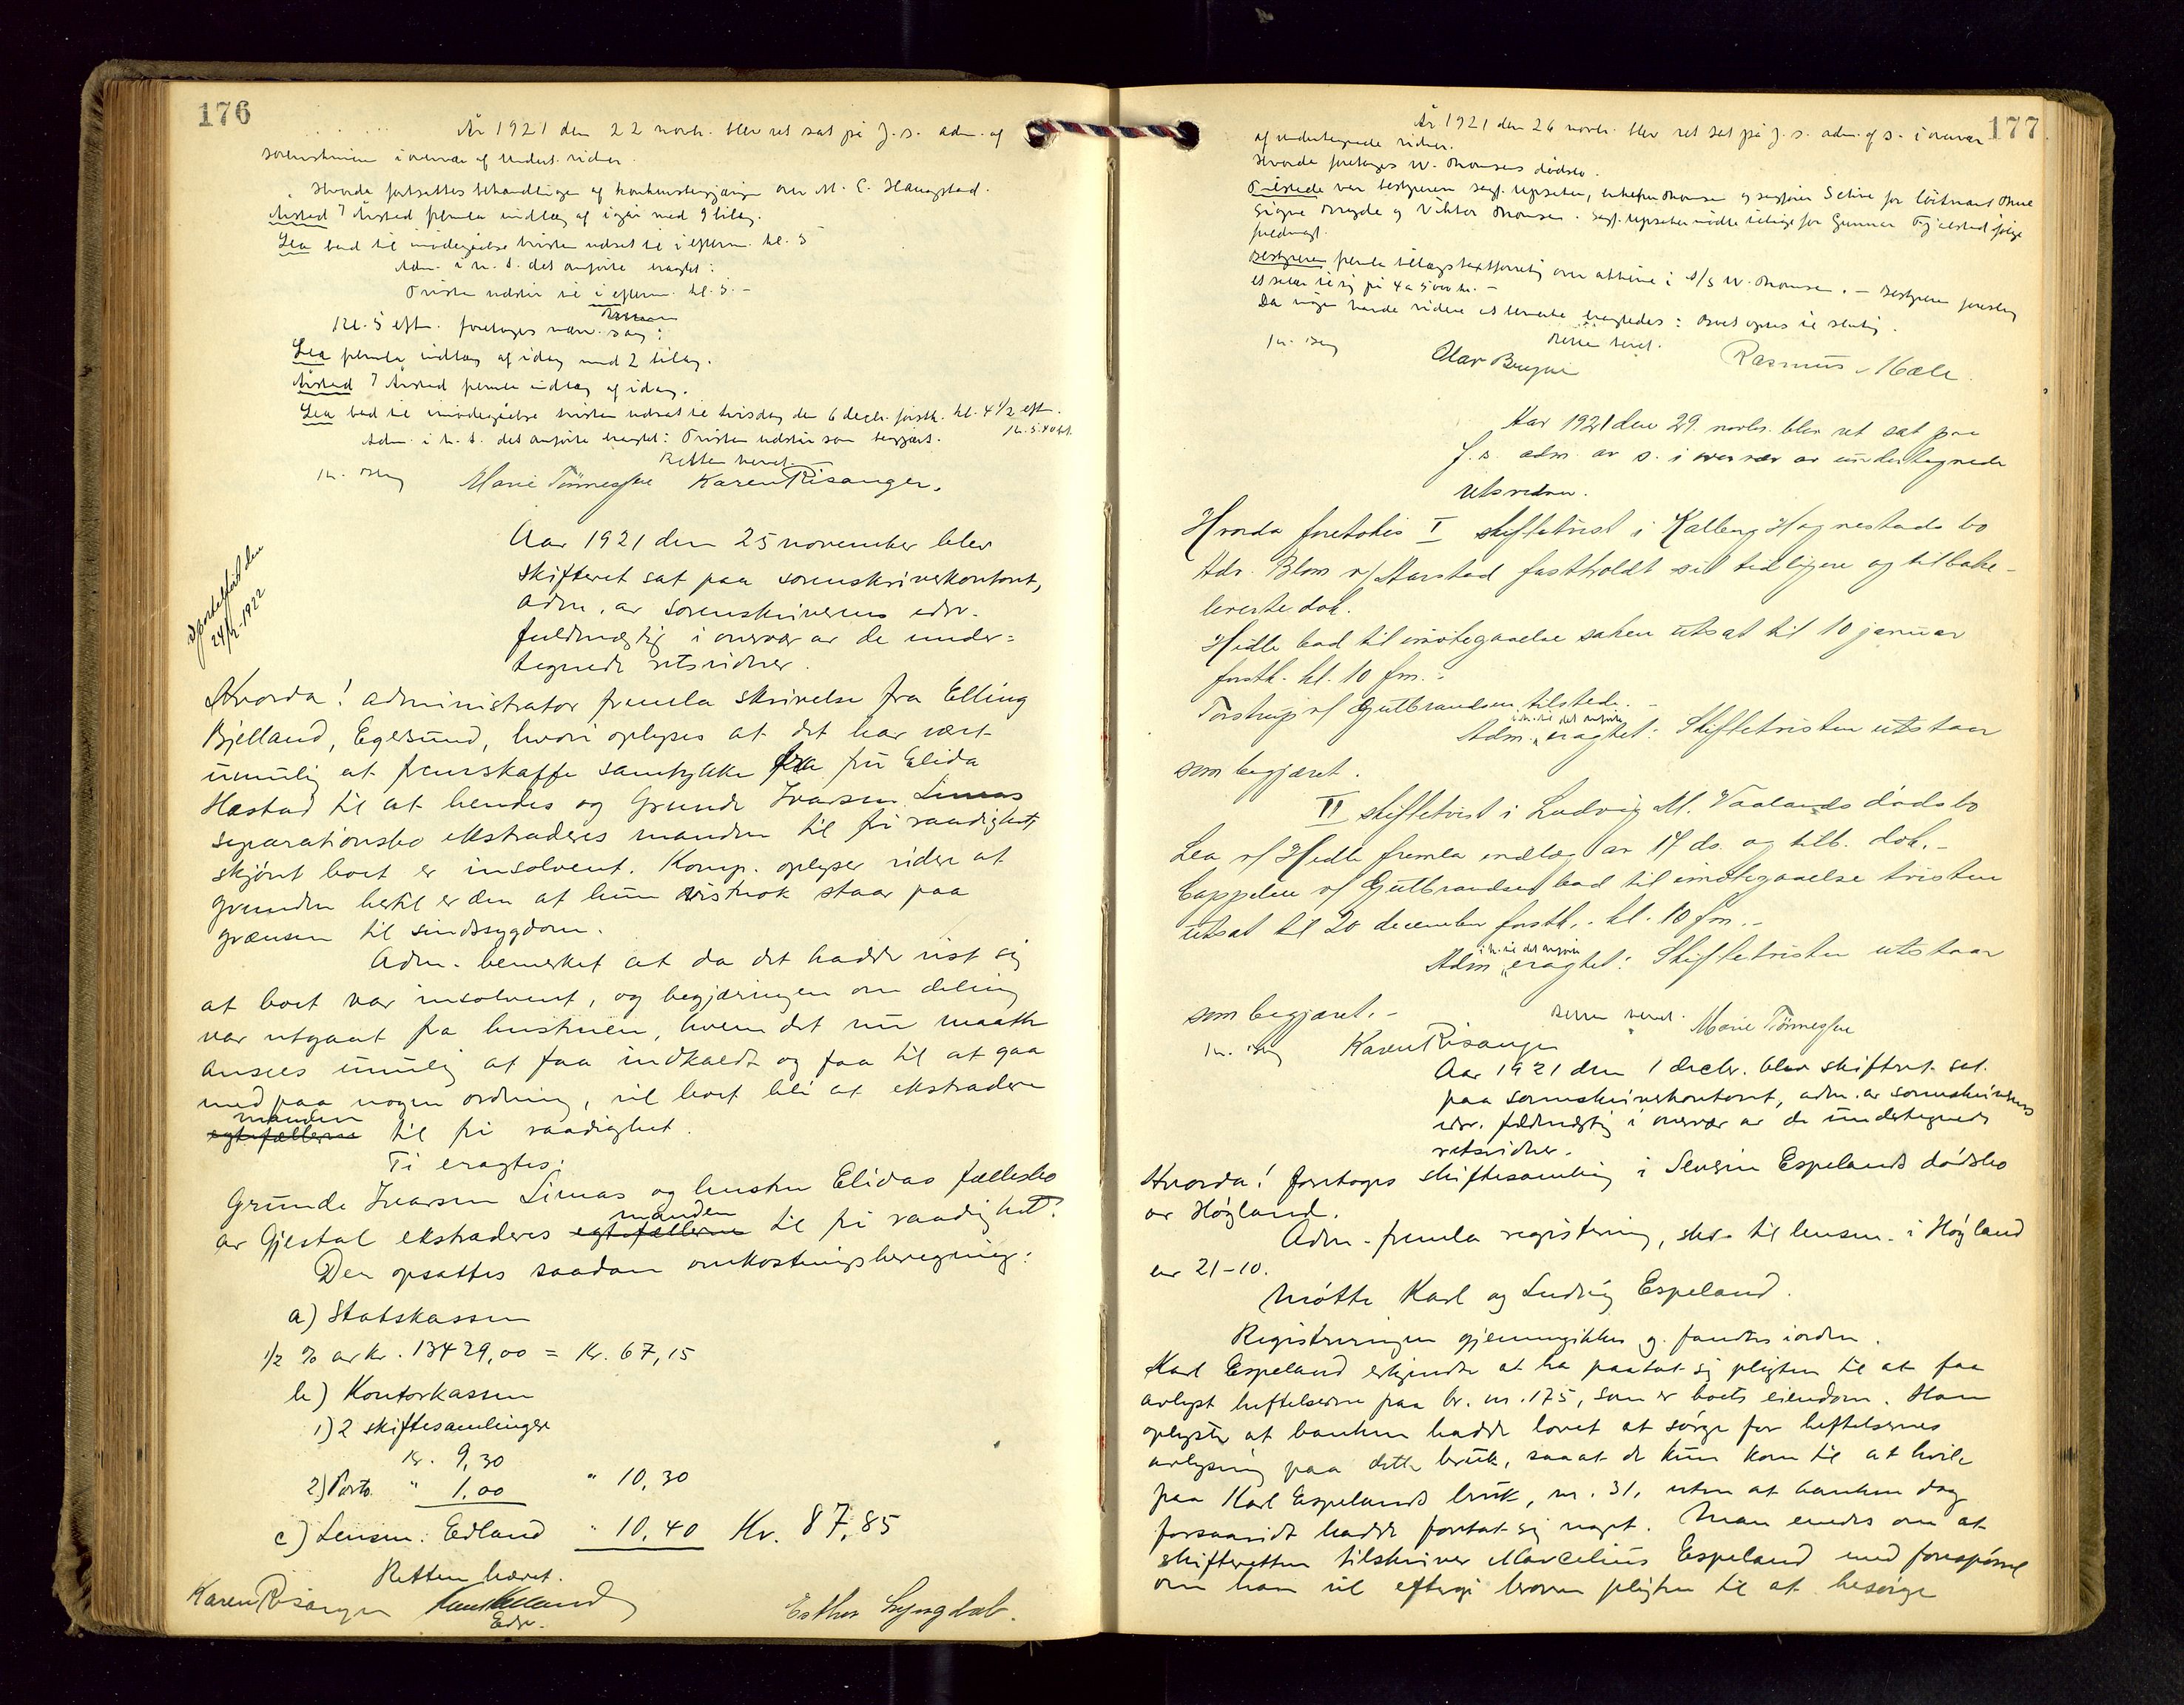 176
År 1921 den 22 novbr. blev ret sat på J. s. adm. af
sorenskriveren i overvær af undert. vidner.
Hvorda fortsattes behandlingen af konkursbegjæringen over M. C. Haugstad.
Årstad f Årstad fremla indlæg af igår med 9 bilag.
Lea bad til imødegåelse tvisten udsat til i efterm. kl. 5
Adm. i h. t. det anførte eragtet:
Tvisten udstår til i efterm. kl. 5. -
Kl. 5 eft. foretoges nævn. sag:
Lea fremla indlæg af idag med 2 bilag.
Årstad f Årstad fremla indlæg af idag.
Lea bad til imødegåelse tvisten udsat til tirsdag den 6 decbr. førstk. kl. 4 1/2 eft.
Adm. i h. t. det anførte eragtet: Tvisten udstår som begjært.
Kl. 5.40
Retten hævet.
Marie Tönnessen Karen Risanger.
Sportelført den
24/2-1922
Aar 1921 den 25 november blev
skifteret sat paa sorenskriverkontoret,
adm. av sorenskriverens edsv.
fuldmægtig i overvær av de under=
tegnede retsvidner.
Hvorda! administrator fremla skrivelse fra Elling
Bjelland, Egersund, hvori oplyses at det har vært
umulig at fremskaffe samtykke fra fru Elida
Hæstad til at hendes og Grunde Ivarsen Limas
separationsbo ekstraderes manden til fri raadighet,
skjønt boet er insolvent. Komp. oplyser videre at
grunden hertil er den at hun vistnok staar paa
grænsen til sindssygdom.
Adm. bemerket at da det hadde vist sig
at boet var insolvent, og begjæringen om deling
var utgaat fra hustruen, hvem det nu maatte
ansees umulig at faa indkaldt og faa til at gaa
med paa nogen ordning, vil boet bli at ekstradere
manden
egtefællerne til fri raadighet.
Ti eragtes:
Grunde Ivarsen Limas og hustru Elidas fællesbo
manden
av Gjestal ekstraderes egtefællerne til fri raadighet.
Der opsattes saadan omkostningsberegning:
a) Statskassen
1/2 % av kr. 13429,00 = Kr. 67,15
b) Kontorkassen
1) 2 skiftesamlinger
Kr. 9,30
2) Porto " 1,00 " 10,30
c) Lensm: Edland " 10,40 Kr. 87,85
Retten hævet.
Karen Risanger
Edsv.
Esther Lyngdal.
177
År 1921 den 26 novbr. blev ret sat på J. s. adm. af s. i overvær
af undertegnede vidner.
Hvorda foretoges W. Thomsens dødsbo.
Tilstede var bestyreren sagf. Upsaker, enkefru Thomsen og sagfører Schive for løitnant Thue
Signe Bragde og Viktor Thomsen. Sagf. Upsaker mødte tillige for Gunnar Fjelstad ifølge
fuldmagt.
Bestyreren fremla tillægstaxtforretning over aktierne i A/S W. Thomsen. - Bestyreren foreslog
Da ingen havde videre at bemerke eragtedes: Boet optas til slutning.
Retten hævet.
Olav Bryne Rasmus Mæle.
Aar 1921 den 29. novbr. blev ret sat paa
J. s. adm. av s. i overvær av undertegnede
retsvidner.
Hvorda foretokes I skiftetvist i Kalberg Hognestads bo
Adv. Blom v/ Aarstad fastholdt sit tidligere og tilbake-
leverte dok.
Hidle bad til imøtegaaelse saken utsat til 10 januar
førstk. kl. 10 fm. -
Torstrup v/ Gulbrandsen tilstede. -
i h. til det anførte
Adm. eragtet: Skiftetvisten utstaar
som begjæret.
II skiftetvist i Ludvig M. Vaalands dødsbo
Lea v/ Hidle fremla indlæg av 17 ds. og tilb. dok. -
Cappelen v/ Gulbrandsen bad til imøtegaaelse tvisten
utsat til 20 december førstk. kl. 10 fm. -
i h. til det anførte
Adm. eragtet: Skiftetvisten utstaar
som begjæret. -
Retten hævet. Marie Tönnessen
Karen Risanger
Aar 1921 den 1 decbr. blev skifteret sat
paa sorenskriverkontoret, adm. av sorenskriverens
edsv. fuldmægtig i overvær av de undertegnede
retsvidner.
Hvorda! foretoges skiftesamling i Severin Espelands dødsbo
av Høyland.
Adm. fremla registrering, skr. til lensm. i Høyland
av 21-10.
Møtte Karl og Ludvig Espeland.
Registreringen gjennemgikkes og fandtes iorden.
Karl Espeland erkjendte at ha paatat sig pligten til at faa
avlyst heftelserne paa br. nr. 175, som er boets eiendom. Han
oplyste at banken hadde lovet at sørge for heftelsernes
avlysning paa dette bruk, saaat de kun kom til at hvile
paa Karl Espelands bruk, nr. 31, uten at banken dog
forsaavidt hadde foretat sig noget. Man enedes om at
skifteretten tilskriver Marcelius Espeland med forespørsel
om han vil eftergi broren pligten til at besørge